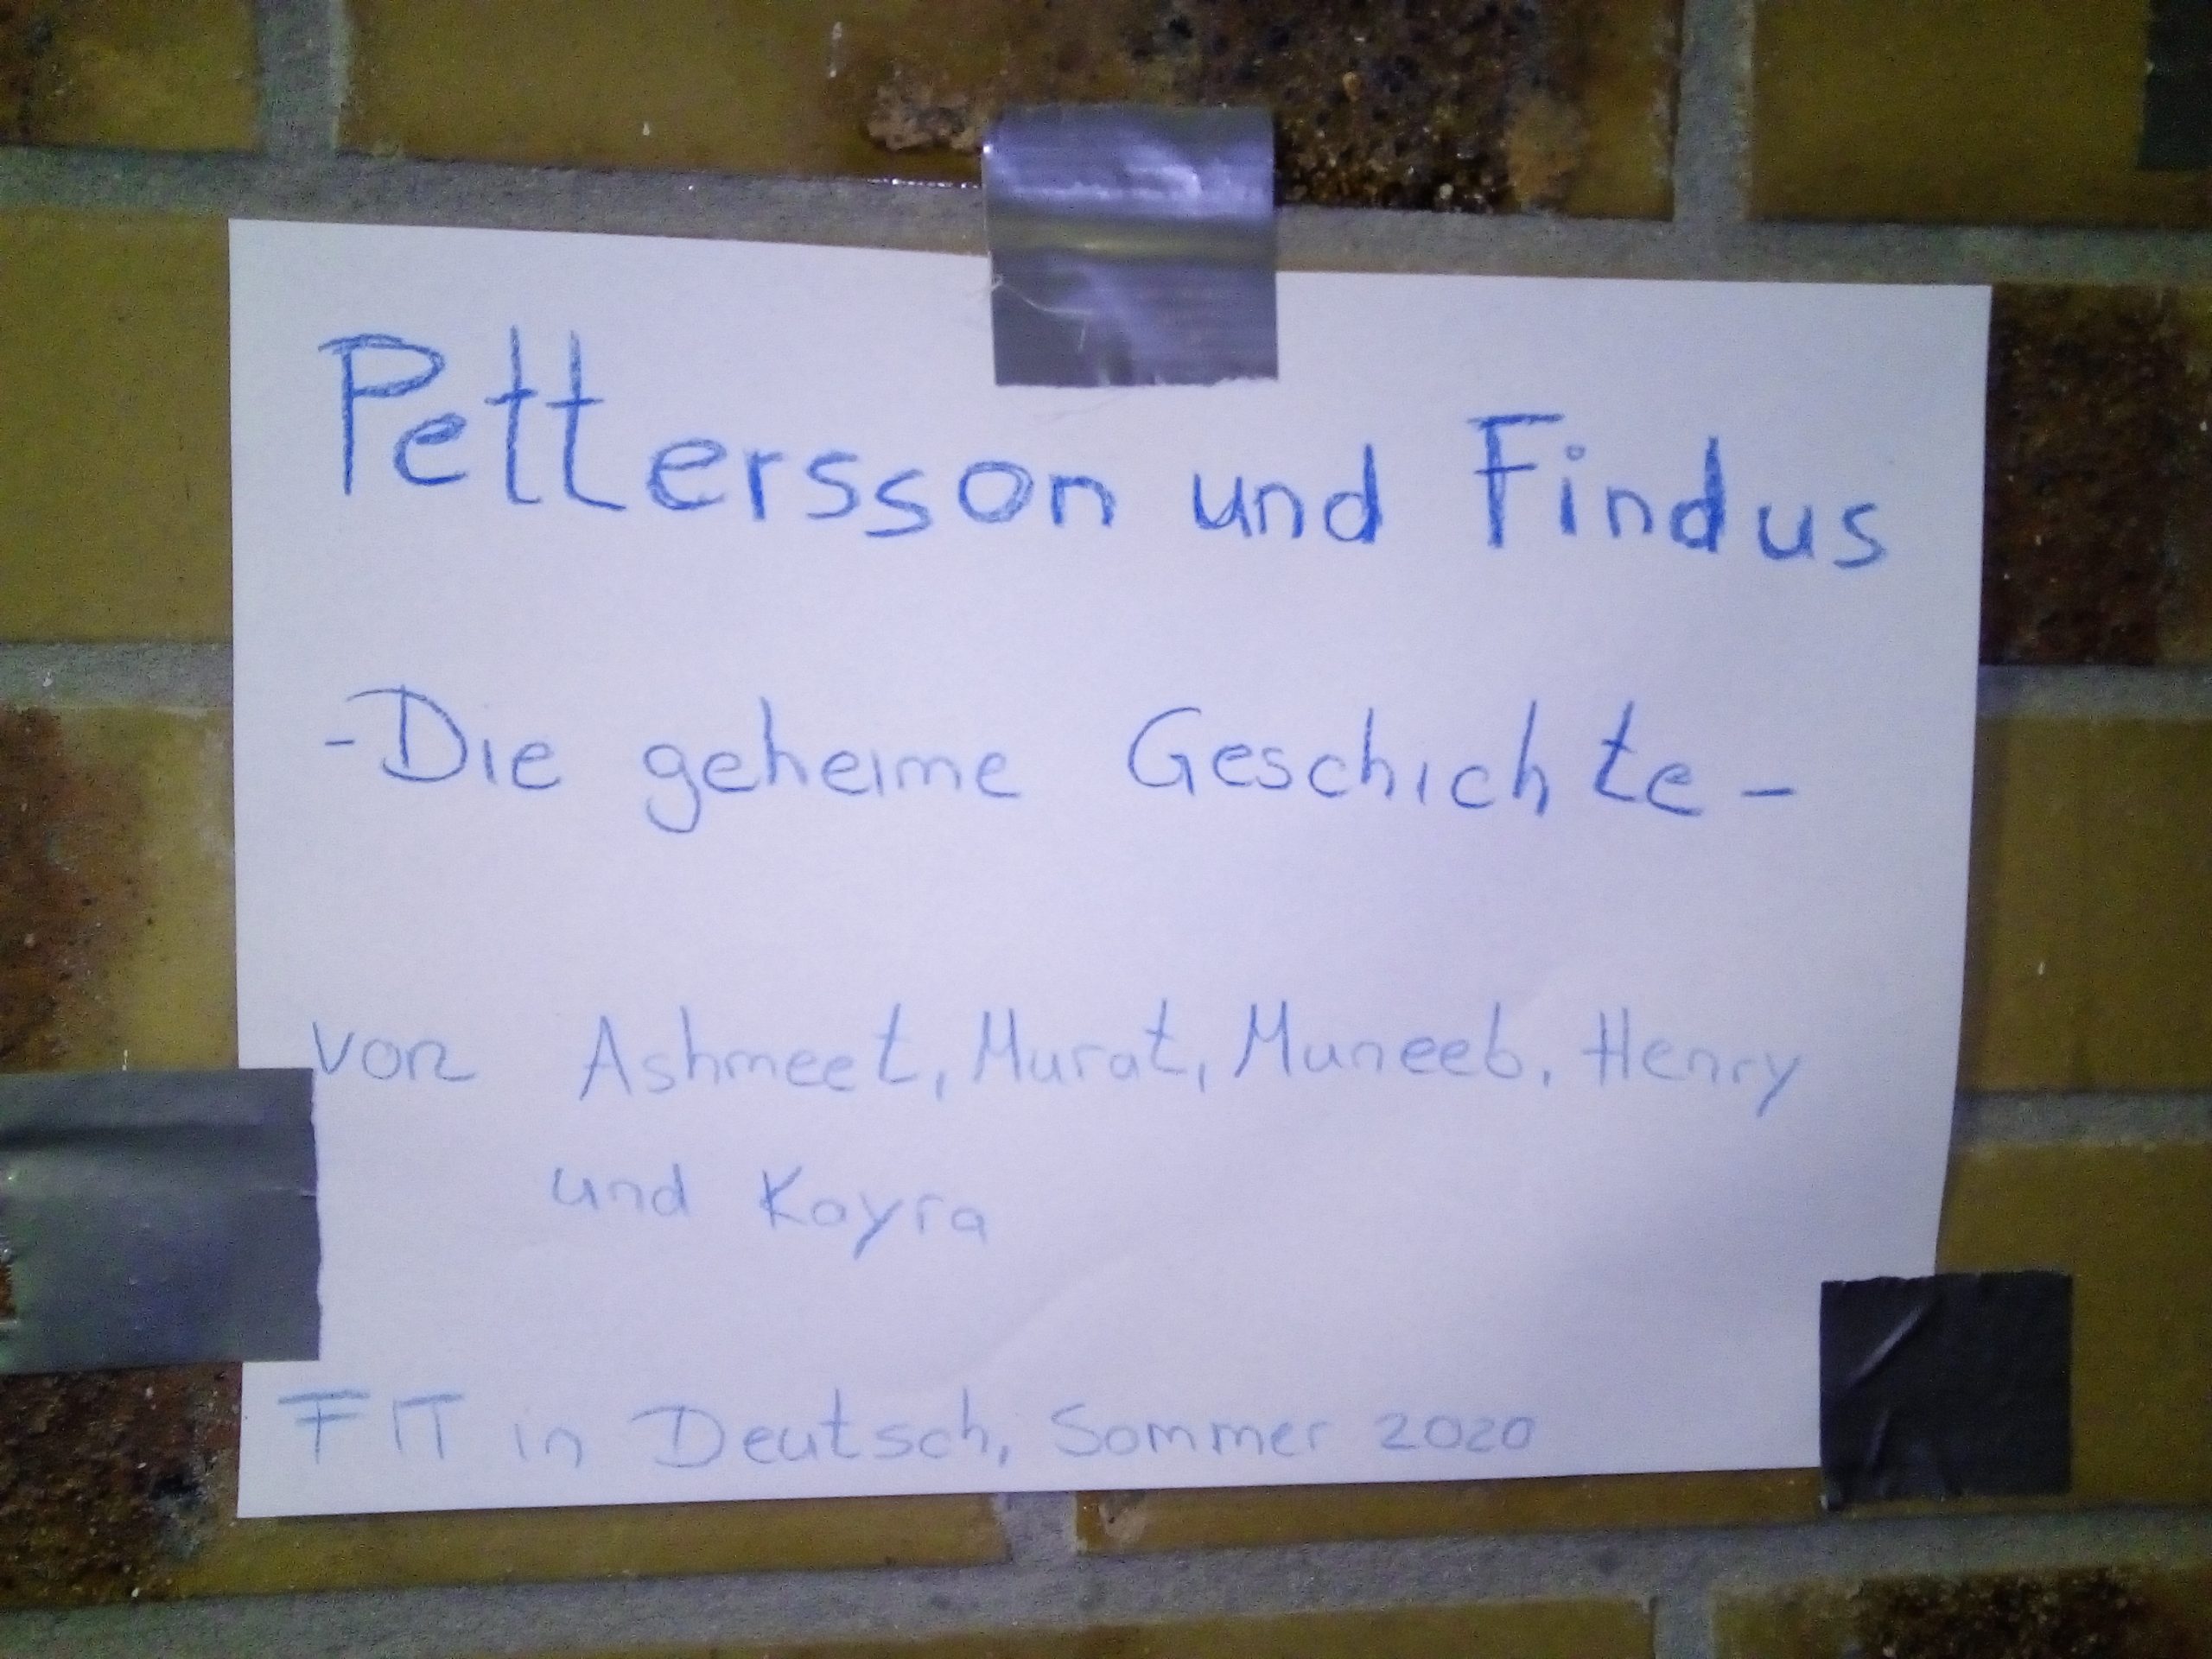 Pettersson und Findus
-Die geheime Geschichte-
von Ashmeet, Murat, Muneeb, Henry
und Kayra
FIT in Deutsch, Sommer 2020